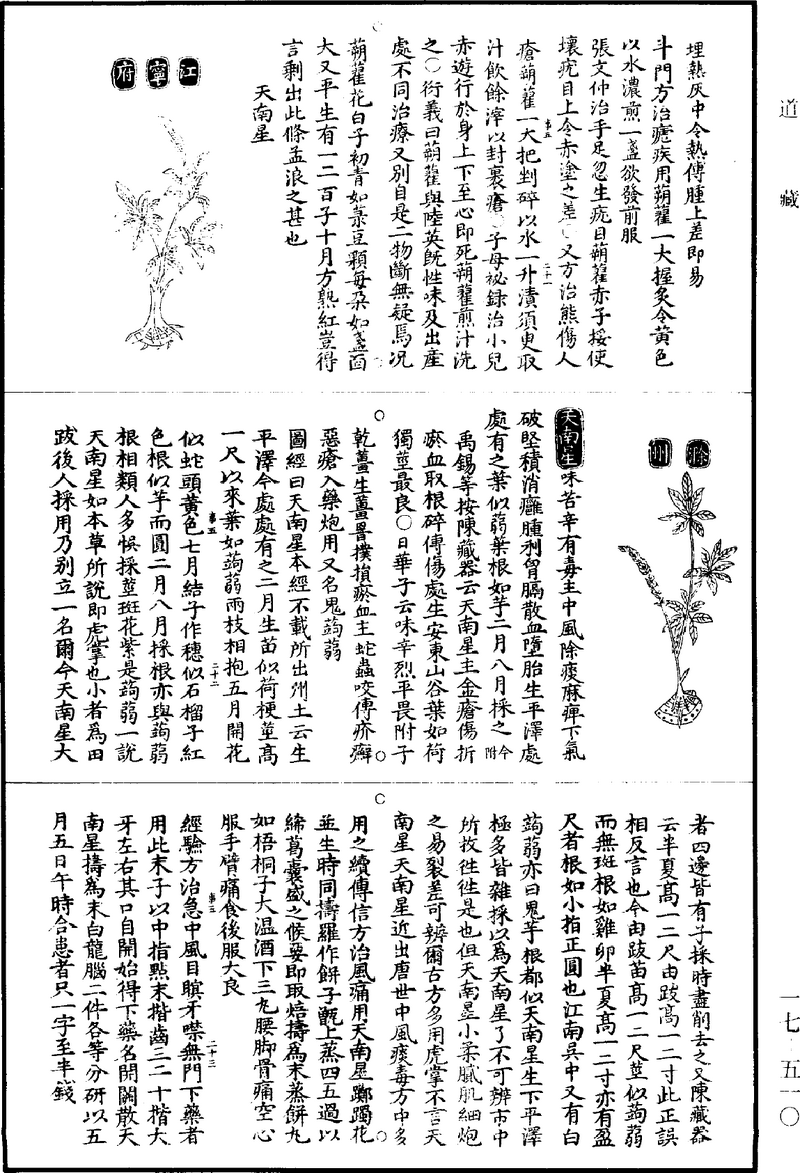 道藏
埋熱灰中令熱傅腫上差即易
斗門方治瘧疾用蒴藋一大握炙令黃色
以水濃煎一盞欲發前服
張文仲治手足忽生疣目蒴藋赤子挼使
壞疣目上令赤塗之差○又方治熊傷人
瘡蒴藋一大把剉碎以水一升漬須臾取
汁飲餘滓以封裹瘡○子母祕録治小兒
赤遊行於身上下至心即死蒴藋煎汁洗
之○衍義曰蒴藋與陸英既性味及出產
處不同治療又別自是二物斷無疑焉况
蒴藋花白子初青如菉豆顆每朵如盞面
大又平生有一二百子十月方熟紅豈得
言剩出此條孟浪之甚也
天南星
江寧府
滁州
天南星味苦辛有毒主中風除痰麻痺下氣
破堅積消癰腫利胷膈散血墮胎生平澤處
處有之葉似蒻葉根如芋二月八月採之今附
禹錫等按陳藏器云天南星主金瘡傷折
瘀血取根碎傅傷處生安東山谷葉如荷
獨莖最良○日華子云味辛烈平畏附子
乾薑生薑罯撲損瘀血主蛇蟲咬傅疥癬
惡瘡入藥炮用又名鬼蒟蒻
圖經曰天南星本經不載所出州土云生
平澤今處處有之二月生苗似荷梗莖高
一尺以來葉如蒟蒻兩枝相抱五月開花
似蛇頭黃色七月結子作穗似石榴子紅
色根似芋而圓二月八月採根亦與蒟蒻
根相類人多悞採莖斑花紫是蒟蒻一說
天南星如本草所說即虎掌也小者爲由
跋後人採用乃別立一名爾今天南星大
者四邊皆有子採時盡削去之又陳藏器
云半夏高一二尺由跋高一二寸此正誤
相反言也今由跋苗高一二尺莖似蒟蒻
而無斑根如雞卵半夏高一二寸亦有盈
尺者根如小指正圓也江南吳中又有白
蒟蒻亦曰鬼芋根都似天南星生下平澤
極多皆雜採以爲天南星了不可辨市中
所收徃徃是也但天南星小柔膩肌細炮
之易裂差可辨爾古方多用虎掌不言天
南星天南星近出唐世中風痰毒方中多
用之續傳信方治風痛用天南星躑躅花
並生時同擣羅作餅子甑上蒸四五過以
絺葛囊盛之候要即取焙擣爲末蒸餅丸
如梧桐子大温酒下三丸腰脚骨痛空心
服手臂痛食後服大良
經驗方治急中風目瞑牙噤無門下藥者
用此末子以中指㸃末揩齒三二十揩大
牙左右其口自開始得下藥名開關散天
南星擣爲末白龍腦二件各等分研以五
月五日午時合患者只一字至半錢
一七-五一〇